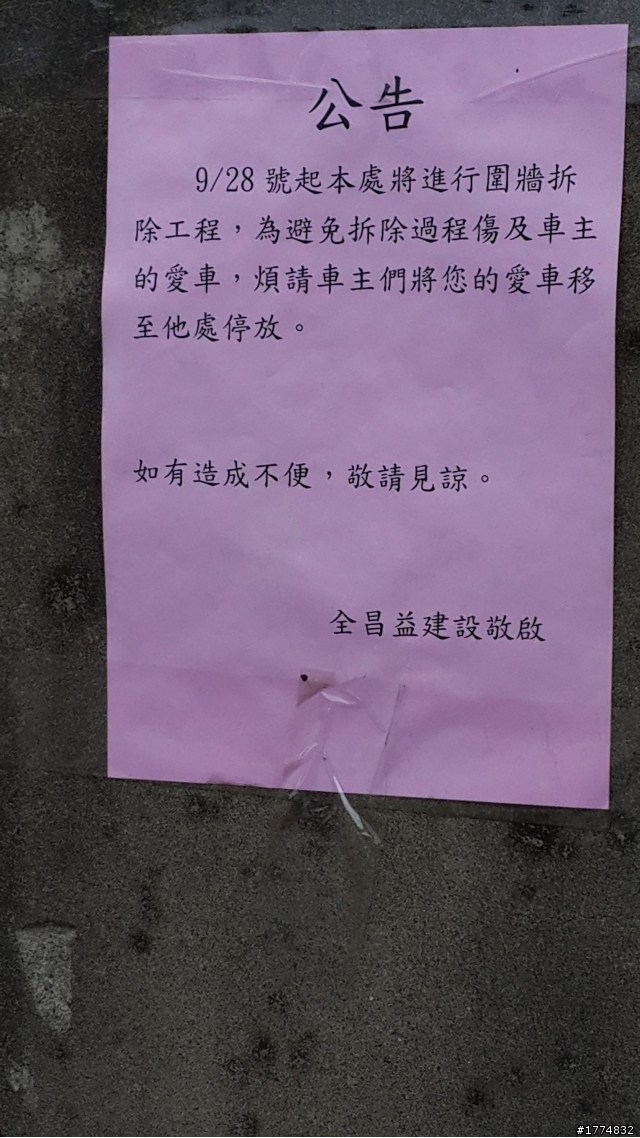 公告
9/28 號起本處將進行圍牆拆
除工程，為避免拆除過程傷及車主
的愛車，煩請車主們將您的愛車移
至他處停放。
如有造成不便，敬請見諒。
全昌益建設敬啟
#1774832